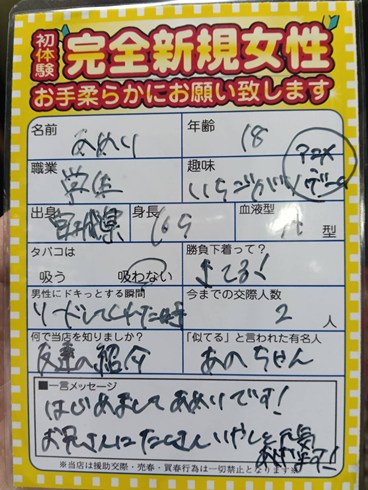 初体験
完全新規女性
お手柔らかにお願い致します
名前 あめり
年齢 18
職業 学生
趣味
出身 宮城県
身長
血液型 型
タバコは 吸う 吸わない
勝負下着って?
男性にドキっとする瞬間 リードしてくれた時
今までの交際人数 2 人
何で当店を知りましたか? 友達の紹介
「似てる」と言われた有名人 あのちゃん
■一言メッセージ
はじめまして です!
お兄さんにたくさん
※当店は援助交際・売春・買春行為は一切禁止となります※